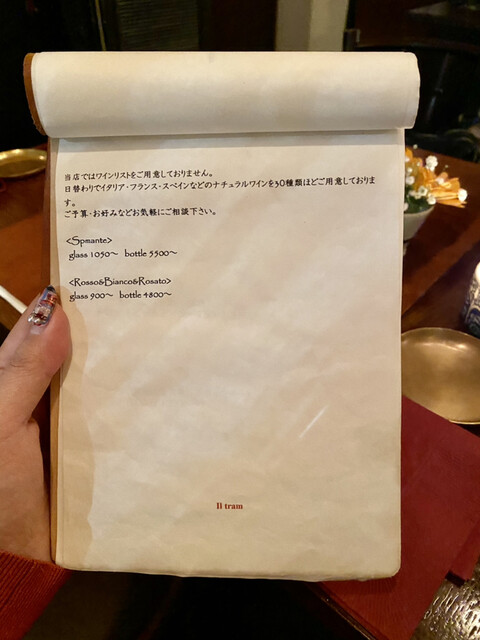 当店ではワインリストをご用意しておりません。
日替わりでイタリア・フランス・スペインなどのナチュラルワインを30種類ほどご用意しておりま
す。
ご予算・お好みなどお気軽にご相談下さい。
<Spmante>
glass 1050～ bottle 5500～
<Rosso&Bianco&Rosato>
glass 900～ bottle 4800～
Il tram